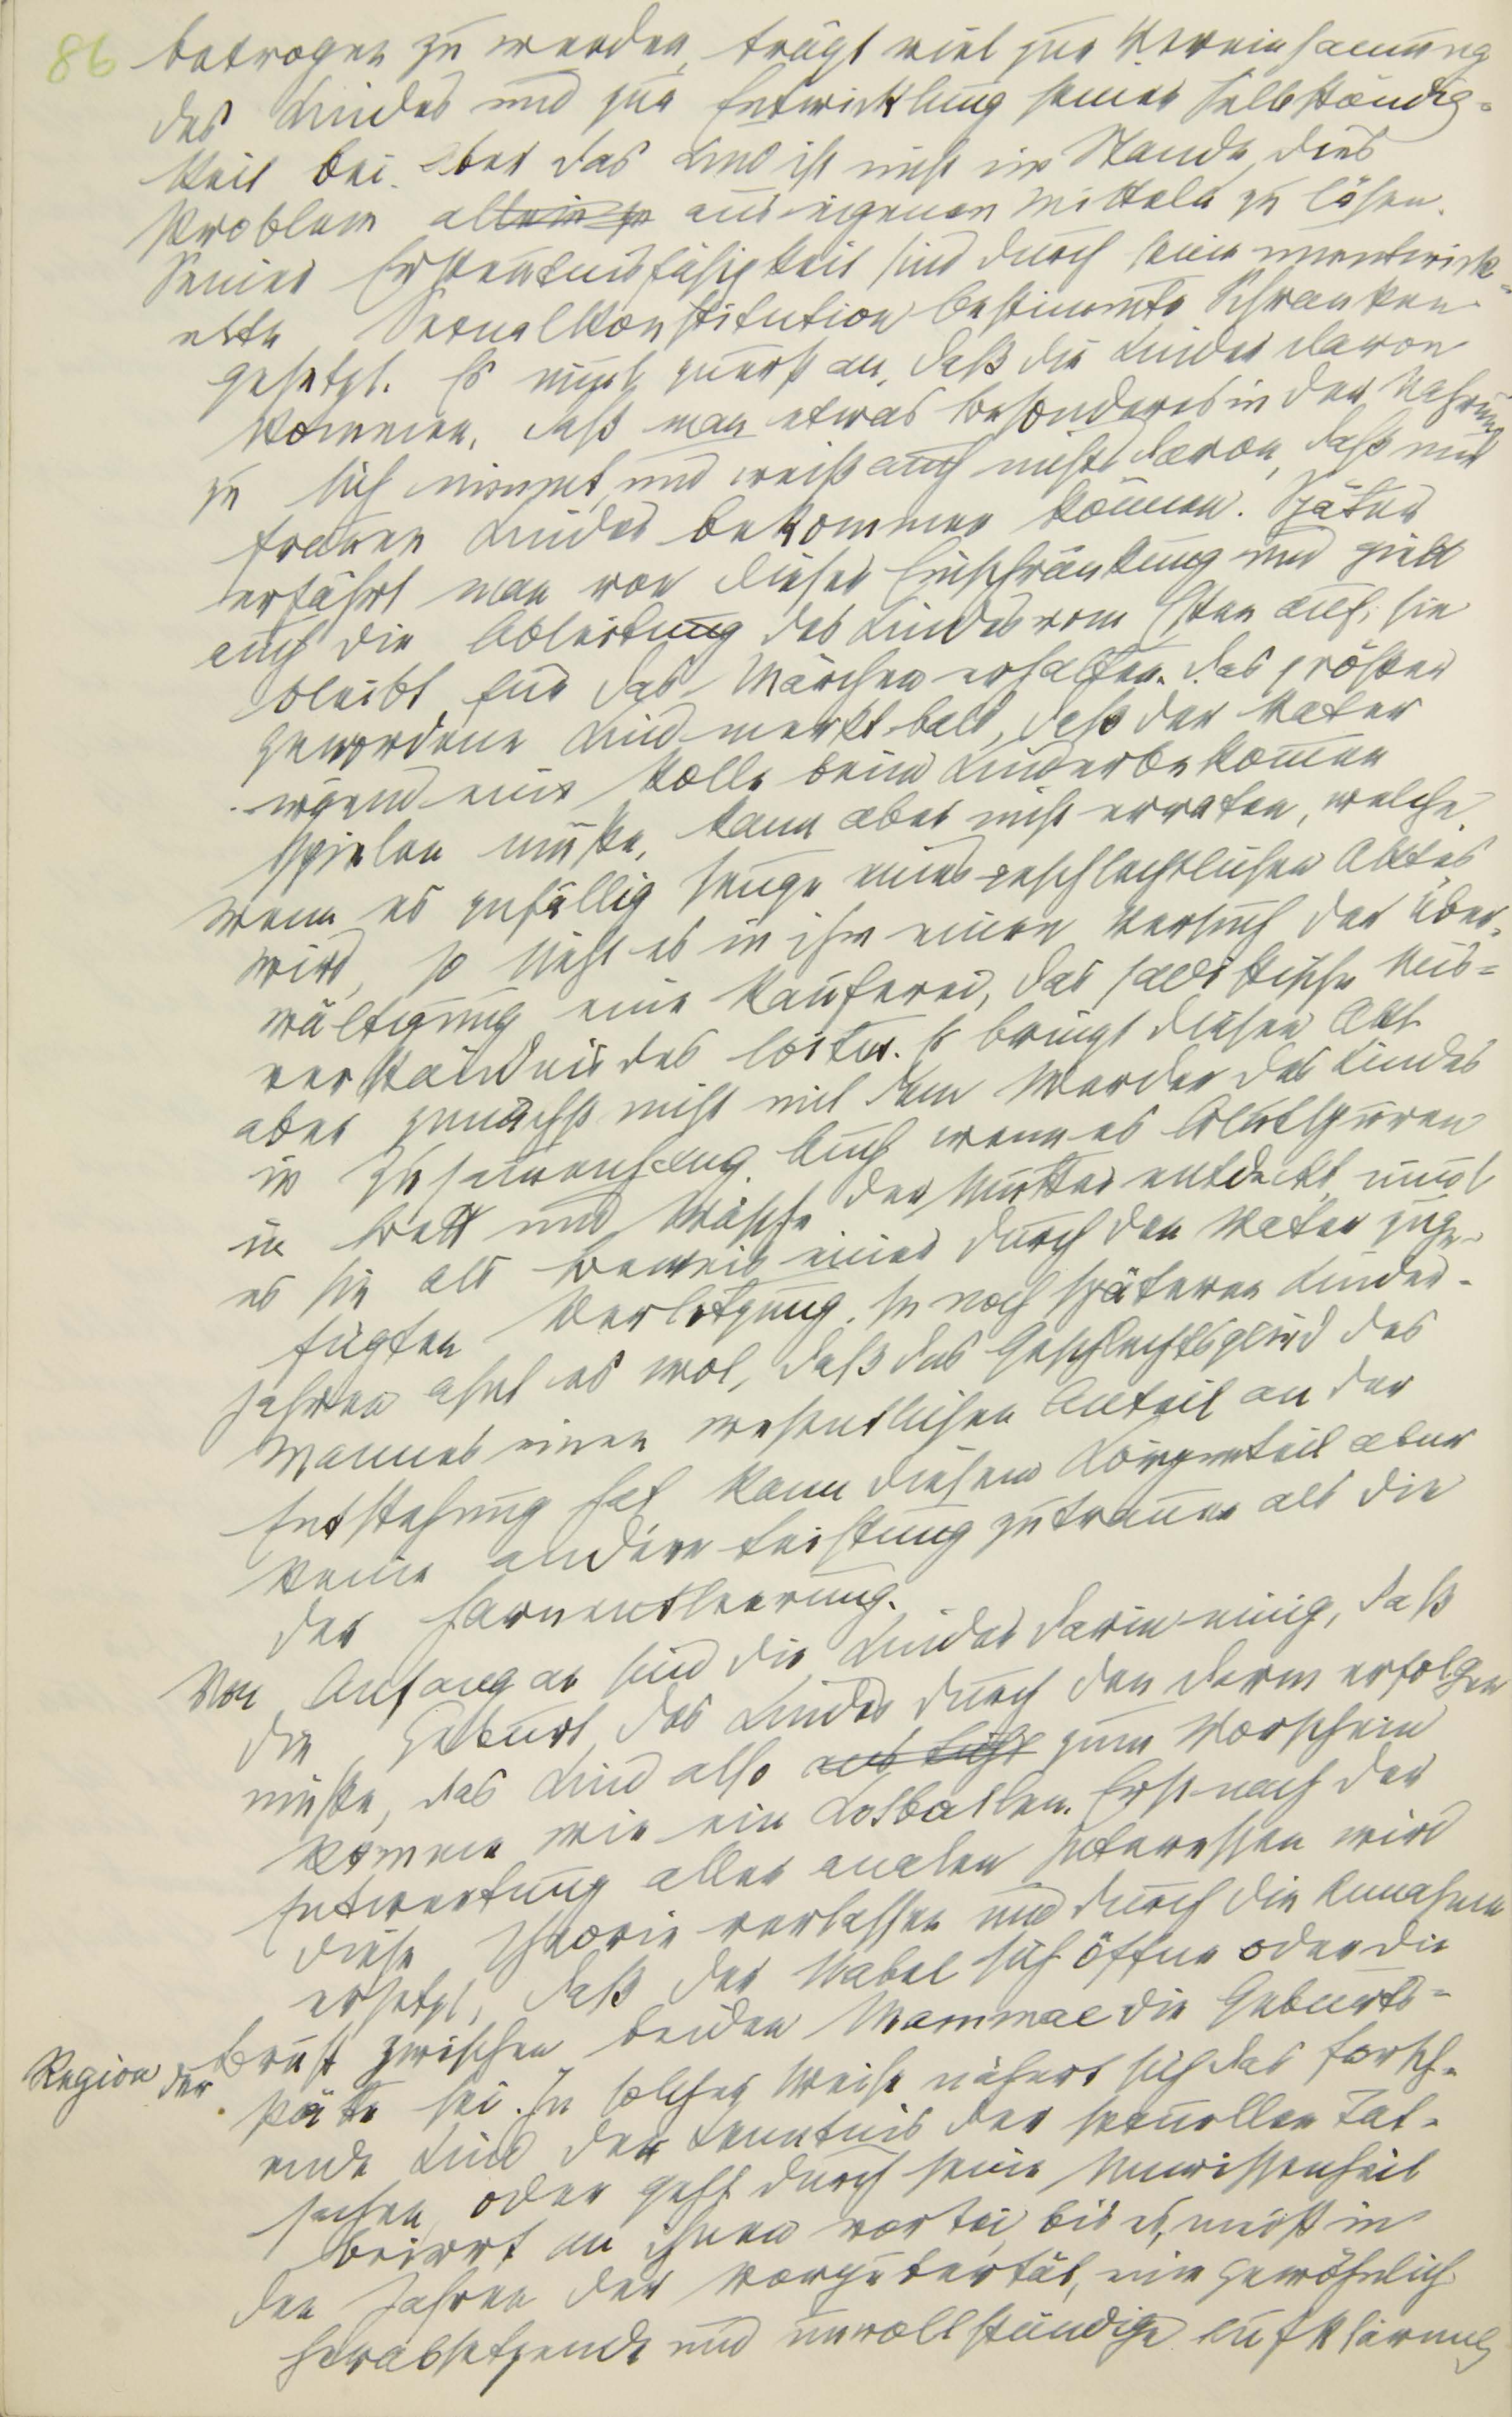 86 betrogen zu werden, trägt viel zur Vereinsamung
des Kindes und zur Entwicklung seiner Selbständig=
keit bei. Aber das Kind ist nicht im Stande, dies
Problem allein zu aus eigenen Mitteln zu lösen.
Seiner Erkenntnisfähigkeit sind durch seine unentwick=
elte Sexualkonstitution bestimmte Schranken
gesetzt. Es nimmt zuerst an, daß die Kinder davon
kommen, daß man etwas besonderes in der Nahrung
zu sich nimmt und weiß auch nichts davon, daß nur
Frauen Kinder bekommen können. Später
erfährt man von dieser Einschränkung und gibt
auch die Ableitung des Kindes vom Essen auf, sie
bleibt für das Märchen erhalten. Das größer
gewordene Kind merkt bald, daß der Vater
irgend eine Rolle beim Kinderbekommen
spielen müsse, kann aber nicht erraten, welche.
Wenn es zufällig Zeuge eines geschlechtlichen Aktes
wird, so sieht es in ihm einen Versuch der Über=
wältigung eine Rauferei, das sadistische Mis=
verständnis des Coitus. Es bringt diesen Akt
aber zunächst nicht mit dem Werden des Kindes
in Zusammenhang. Auch wenn es Blutspuren
in Bett und Wäsche der Mutter entdeckt nimmt
es sie als Beweis einer durch den Vater zuge=
fügten Verletzung. In noch späteren Kinder-
jahren ahnt es wol, daß das Geschlechtsglied des
Mannes einen wesentlichen Anteil an der
Entstehung hat kann diesem Körperteil aber
keine andere Leistung zutrauen als die
der Harnentleerung.
Von Anfang an sind die Kinder darin einig, daß
die Geburt des Kindes durch den Darm erfolgen
müsse, das Kind also zum Vorschein
komme wie ein Kotballen. Erst nach der
Entwertung aller analen Interessen wird
diese Theorie verlassen und durch die Annahme
ersetzt, daß der Nabel sich öffne oder die
Region der Brust zwischen beiden Mammae die Geburts=
stätte sei. In solcher Weise nähert sich das forsch-
ende Kind der Kenntnis der sexuellen Tat-
sachen oder geht durch seine Unwissenheit
beirrt an ihnen vorbei, bis es, meist in
den Jahren der Vorpubertät, eine gewöhnlich
herabsetzende und unvollständige Aufklärung